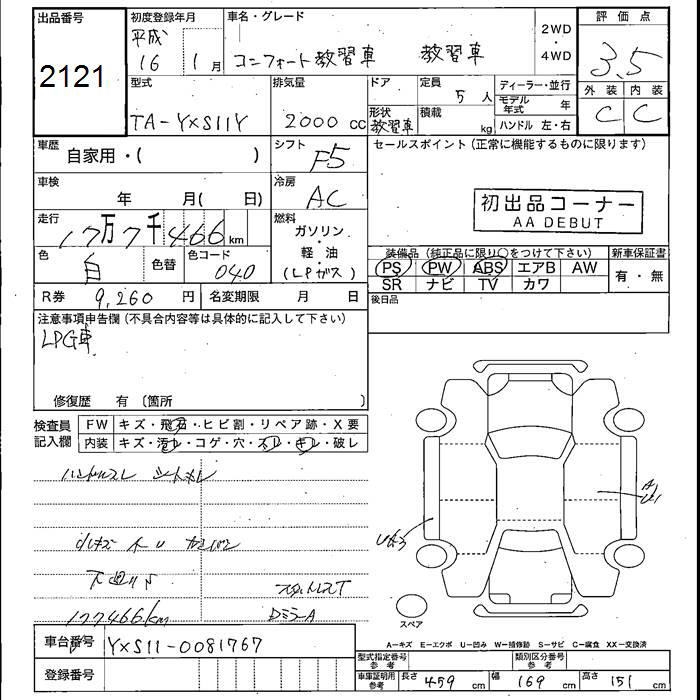 出品番号
2121
初度登録年月
平成
16 1 月
車名・グレード
コンフォート教習車 教習車
2WD
・
4WD
評価点
3.5
外装 内装
C C
型式
TA-YXS11Y
排気量
2000 cc
ドア
形状
教習車
定員
5 人
積載
kg
ディーラー・並行
モデル年式 年
ハンドル 左・右
車歴
自家用・( )
シフト
F5
セールスポイント(正常に機能するものに限ります)
車検
年 月( 日)
冷房
AC
初出品コーナー
AA DEBUT
走行
17万7千466km
燃料
ガソリン
・
軽・油
(LPガス)
色
白
色替
色コード
040
装備品(純正品に限り○をつけて下さい)
PS PW ABS エアB AW
SR ナビ TV カワ
新車保証書
有・無
R券 9,260 円
名変期限 月 日
後日品
注意事項申告欄(不具合内容等は具体的に記入して下さい)
LPG車
修復歴 有 〔箇所 〕
検査員
記入欄
FW キズ・飛石・ヒビ割・リペア跡・X要
内装 キズ・汚レ・コゲ・穴・スレ・キレ・破レ
ハンドルスレ シートキレ
下廻りサ
スタットレスT
177466km
DミラーA
スペア
A=キズ E=エクボ U=凹み W=補修跡 S=サビ C=腐食 XX=交換済
車台番号 YXS11-0081767
登録番号
型式指定番号
参考
類別区分番号
参考
車庫証明用
参考
長さ 459 cm 幅 169 cm 高さ 151 cm